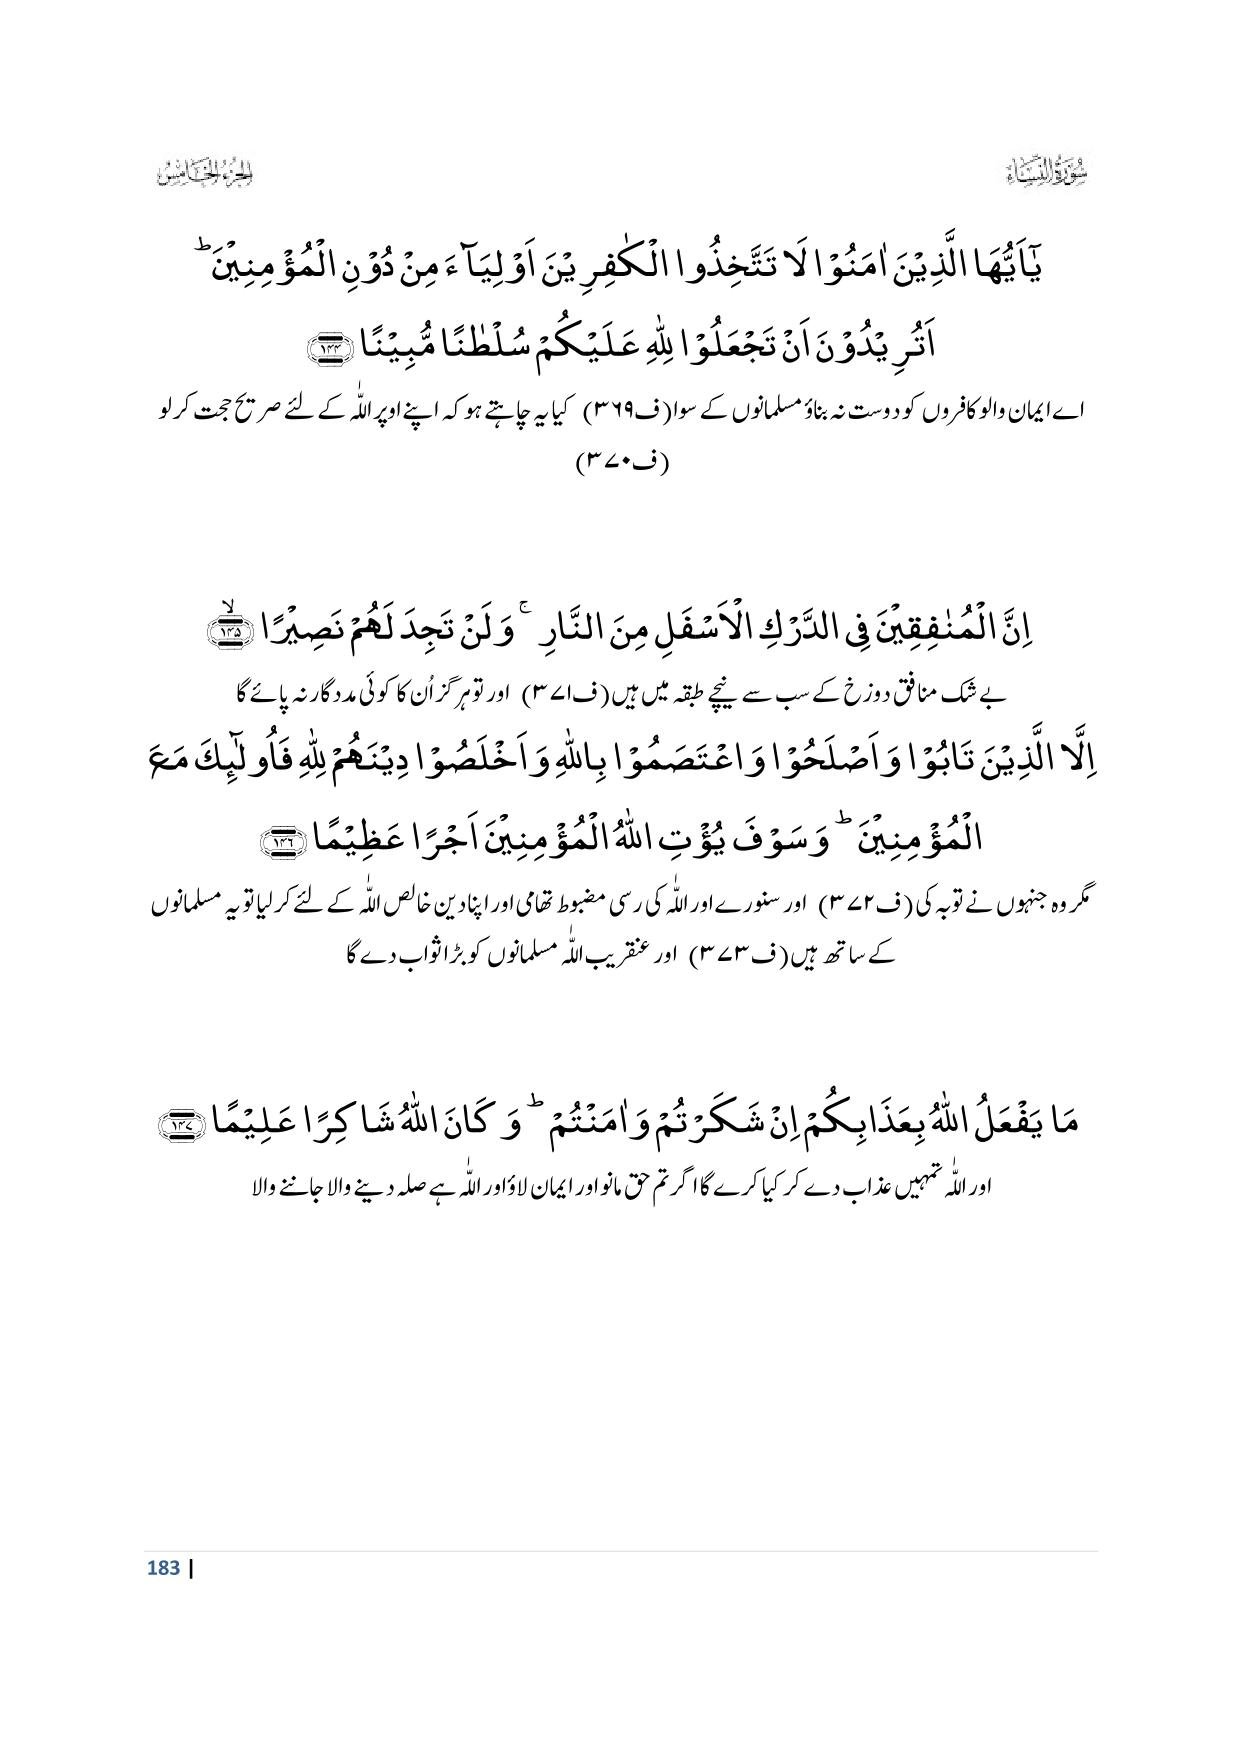 سُوْرَةُ النِّسَآء
الجزء الخامس
يٰۤاَيُّهَا الَّذِيْنَ اٰمَنُوْا لَا تَتَّخِذُوا الْكٰفِرِيْنَ اَوْلِيَآءَ مِنْ دُوْنِ الْمُؤْمِنِيْنَ ؕ
اَتُرِيْدُوْنَ اَنْ تَجْعَلُوْا لِلّٰهِ عَلَيْكُمْ سُلْطٰنًا مُّبِيْنًا ﴿۱۴۴﴾
اے ایمان والو کافروں کو دوست نہ بناؤ مسلمانوں کے سوا (ف۳۶۹) کیا یہ چاہتے ہو کہ اپنے اوپر اللّٰہ کے لئے صریح حجت کر لو
(ف۳۷۰)
اِنَّ الْمُنٰفِقِيْنَ فِی الدَّرْكِ الْاَسْفَلِ مِنَ النَّارِ ۚ وَ لَنْ تَجِدَ لَهُمْ نَصِيْرًا ﴿۱۴۵﴾ۙ
بے شک منافق دوزخ کے سب سے نیچے طبقہ میں ہیں (ف۳۷۱) اور تو ہرگز اُن کا کوئی مددگار نہ پائے گا
اِلَّا الَّذِيْنَ تَابُوْا وَ اَصْلَحُوْا وَ اعْتَصَمُوْا بِاللّٰهِ وَ اَخْلَصُوْا دِيْنَهُمْ لِلّٰهِ فَاُولٰٓئِكَ مَعَ
الْمُؤْمِنِيْنَ ؕ وَ سَوْفَ يُؤْتِ اللّٰهُ الْمُؤْمِنِيْنَ اَجْرًا عَظِيْمًا ﴿۱۴۶﴾
مگر وہ جنہوں نے توبہ کی (ف۳۷۲) اور سنورے اور اللّٰہ کی رسی مضبوط تھامی اور اپنا دین خالص اللّٰہ کے لئے کر لیا تو یہ مسلمانوں
کے ساتھ ہیں (ف۳۷۳) اور عنقریب اللّٰہ مسلمانوں کو بڑا ثواب دے گا
مَا يَفْعَلُ اللّٰهُ بِعَذَابِكُمْ اِنْ شَكَرْتُمْ وَ اٰمَنْتُمْ ؕ وَ كَانَ اللّٰهُ شَاكِرًا عَلِيْمًا ﴿۱۴۷﴾
اور اللّٰہ تمہیں عذاب دے کر کیا کرے گا اگر تم حق مانو اور ایمان لاؤ اور اللّٰہ ہے صلہ دینے والا جاننے والا
183 |